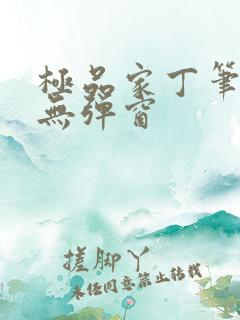 極品家丁筆
無彈窗
搓腳丫
未任同意禁止转载